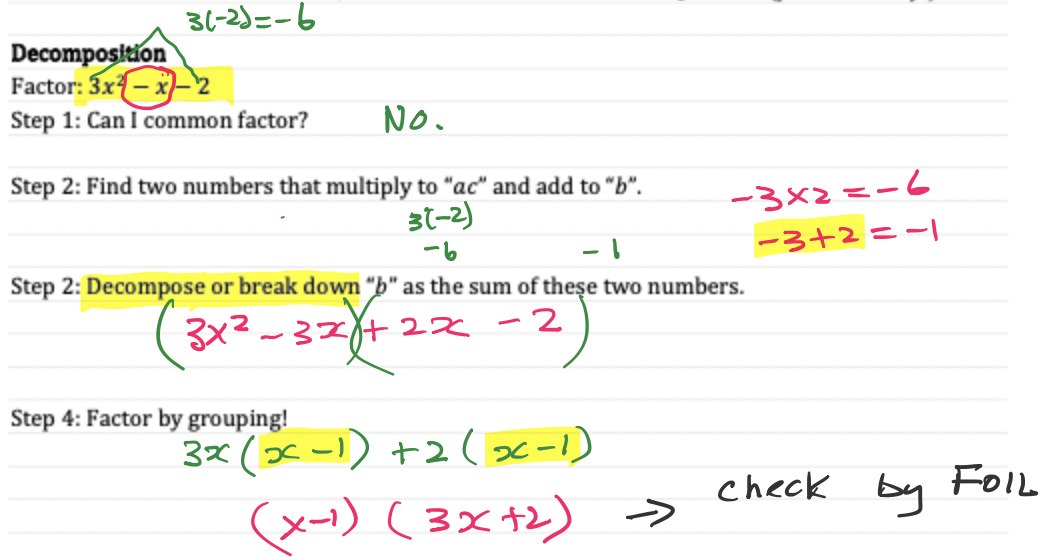 3(-2)=-6
Decomposition
Factor: 3x² − x − 2
Step 1: Can I common factor? No.
Step 2: Find two numbers that multiply to “ac” and add to “b”.
-3×2 = -6
3(-2)
-6 -1
-3+2 = -1
Step 2: Decompose or break down “b” as the sum of these two numbers.
(3x² - 3x)(+ 2x - 2)
Step 4: Factor by grouping!
3x(x-1) +2(x-1)
(x-1) (3x+2) → check by FOIL